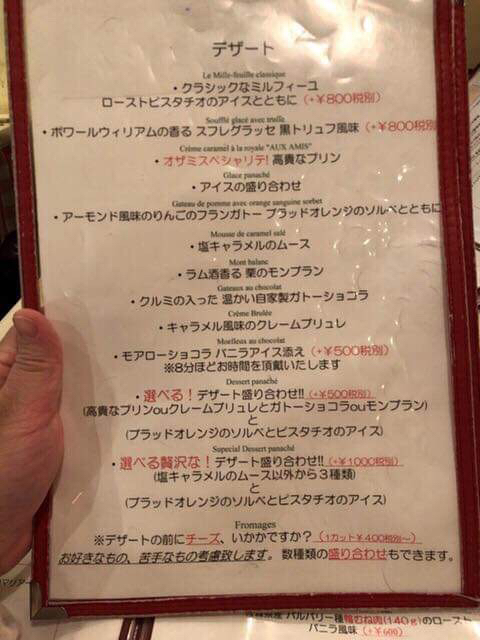 デザート
Le Mille-feuille classique
・クラシックなミルフィーユ
ローストピスタチオのアイスとともに (+￥800税別)
Soufflé glacé avec truffe
・ポワールウィリアムの香る スフレグラッセ 黒トリュフ風味 (+￥800税別)
Crème caramel à la royale "AUX AMIS"
・オザミスペシャリテ! 高貴なプリン
Glace panaché
・アイスの盛り合わせ
Gateau de pomme avec orange sanguine sorbet
・アーモンド風味のりんごのフランガトー ブラッドオレンジのソルベとともに
Mousse de caramel salé
・塩キャラメルのムース
Mont balanc
・ラム酒香る 栗のモンブラン
Gateaux au chocolat
・クルミの入った 温かい自家製ガトーショコラ
Crème Brulée
・キャラメル風味のクレームブリュレ
Morlleux au chocolat
・モアローショコラ バニラアイス添え (+￥500税別)
※8分ほどお時間を頂戴いたします
Dessert panaché
・選べる! デザート盛り合わせ!! (+￥500税別)
(高貴なプリンouクレームブリュレとガトーショコラouモンブラン)
と
(ブラッドオレンジのソルベとピスタチオのアイス)
Supecial Dessert panaché
・選べる贅沢な! デザート盛り合わせ!! (+￥1000税別)
(塩キャラメルのムース以外から3種類)
と
(ブラッドオレンジのソルベとピスタチオのアイス)
Fromages
※デザートの前にチーズ、いかかですか? (1カット￥400税別～)
お好きなもの、苦手なもの考慮致します。 数種類の盛り合わせもできます。
バルバリー種鴨むね肉(140g)のロースト
バニラ風味 (+￥600)